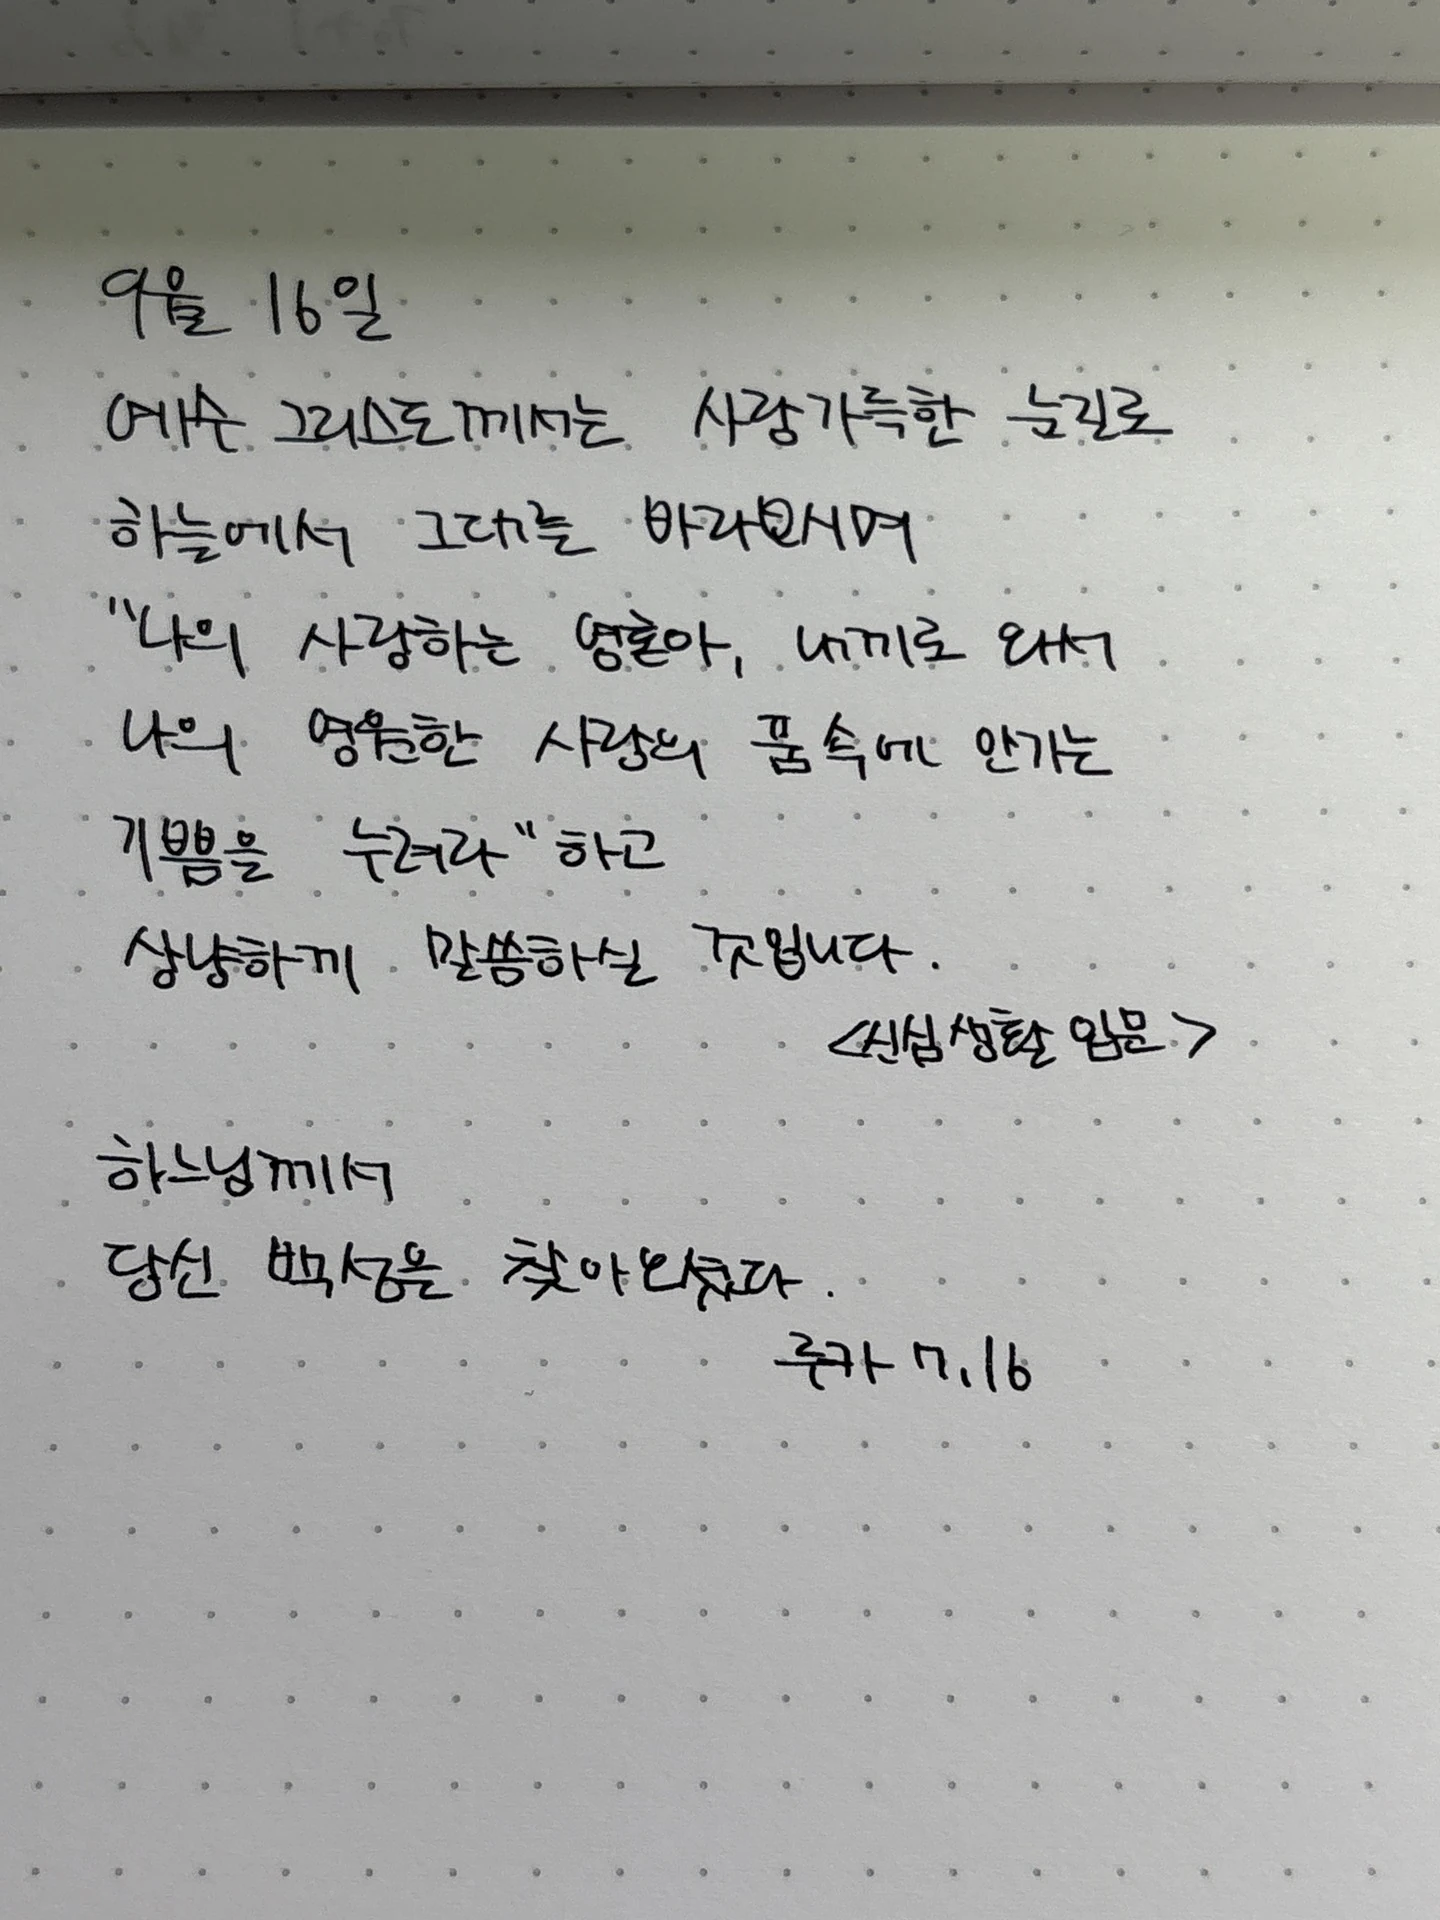 9월 16일
예수 그리스도께서는 사랑가득한 눈길로
하늘에서 그대를 바라보시며
"나의 사랑하는 영혼아, 내게로 와서
나의 영원한 사랑의 품속에 안기는
기쁨을 누려라" 하고
상냥하게 말씀하실 것입니다.
<신심생활 입문>
하느님께서
당신 백성을 찾아오셨다.
루카 7,16